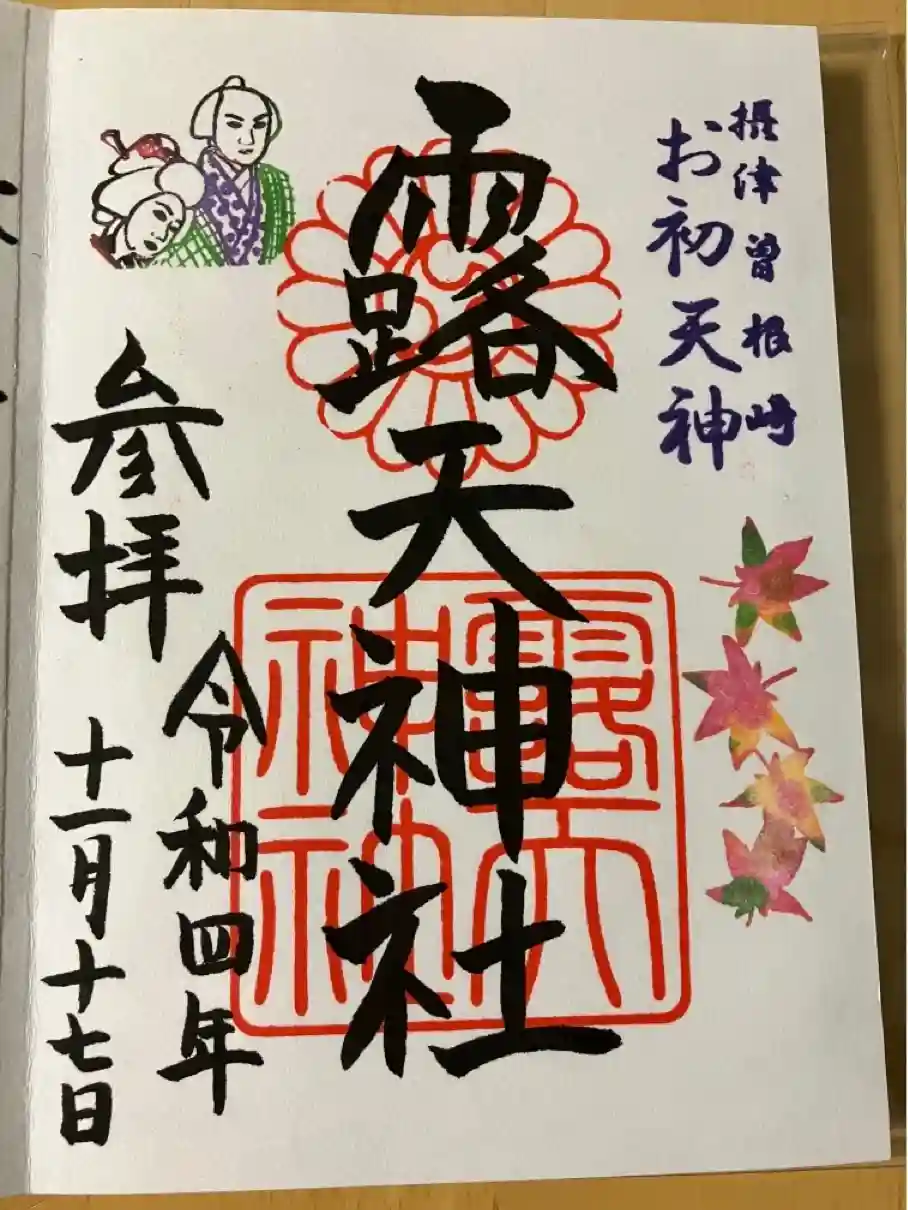 摂津曽根崎
お初天神
露天神社
令和四年
参拝 十一月十七日